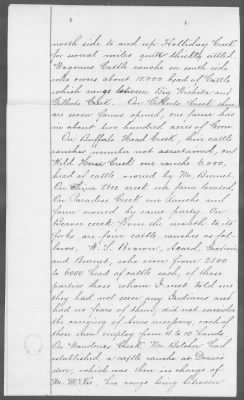 north side to and up Holliday Creek
for several miles quite thickly settled.
Waggoners Cattle ranche on south side
who owns about 15,000 head of Cattle
which range between Big Wichita and
Creek. On Creek they
are seven farms opened, one farm has
in about two hundred acres of Corn.
On Buffalo Head Creek, their cattle
ranches number not ascertained, on
Wild Horse Creek one ranche 6,000,
head of cattle owned by Mr. Burnet.
On China tree creek one farm located,
On Paradise Creek one Ranche and
farm owned by same party. On
Beaver creek from the mouth to its
forks are four cattle ranches as fol-
lows. W. S. Brown, Acard,
and Burnet, who own from 2500
to 6000 head of cattle each, of these
parties those whom I met told me
they had not seen any Indians and
had no fears of them, did not consider
the carrying of Arms necessary, each of
these men employ from 6 to 10 hands
On Wanderers Creek Mr. Belcher had
established a cattle ranche at Doans
store, which was then in charge of
Mr. McKee his range being between